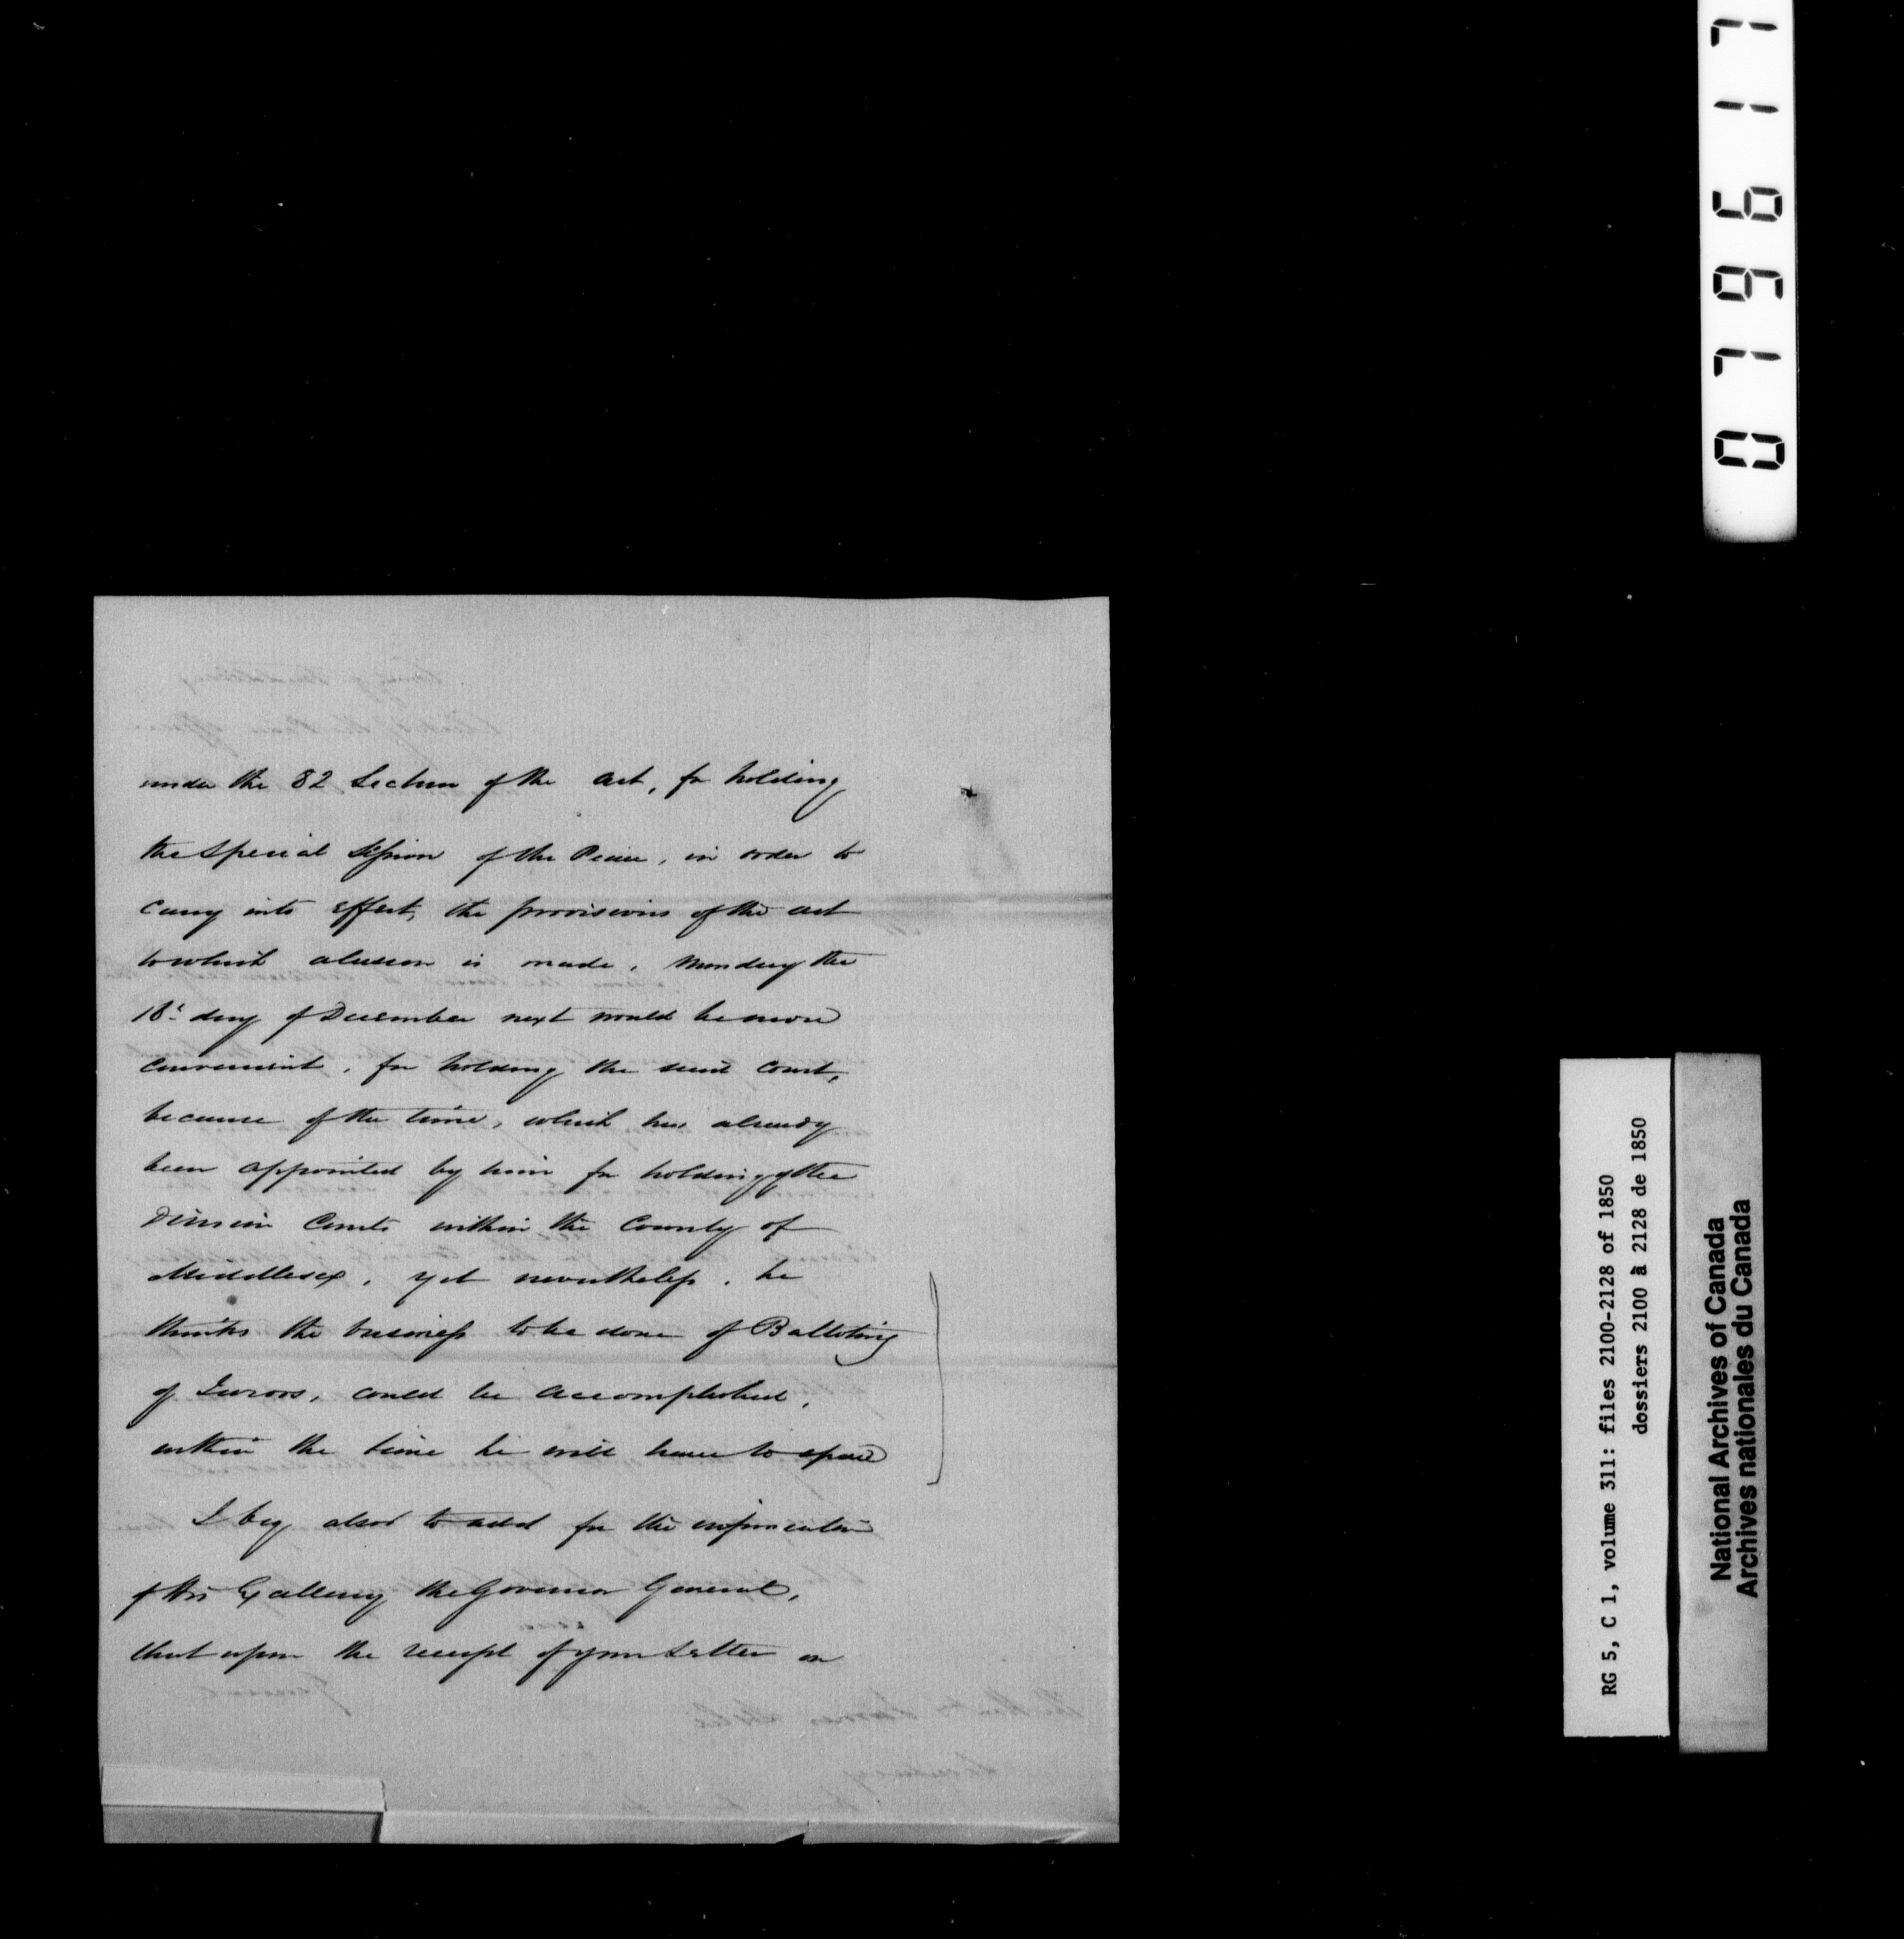 under the 82 Section of the act, for holding
the Special Session of the Peace, in order to
carry into effect, the provisions of the act
to which alusion is made, Monday the
day of December next would be more
convenient, for holding the said Court,
because of the time, which has already
been appointed by him for holding of the
Division Courts within the County of
Middlesex, yet nevertheless, he
thinks the business to be done of Balloting
of Jurors, could be accomplished,
within the time he will have to spare
I beg also to add for the information
of His Excellency the Governor General,
that upon the receipt of your Letter on
079617
RG 5, C 1, volume 311: files 2100-2128 of 1850
dossiers 2100 à 2128 de 1850
National Archives of Canada
Archives nationales du Canada